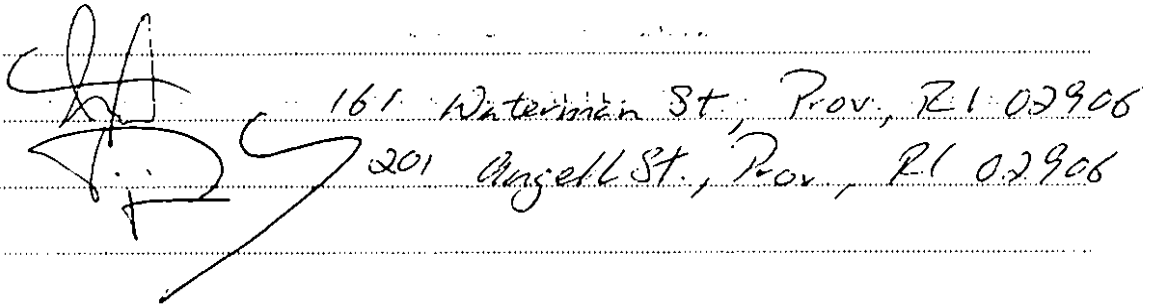 161 Waterman St., Prov., RI 02906
201 Angell St., Prov., RI 02906